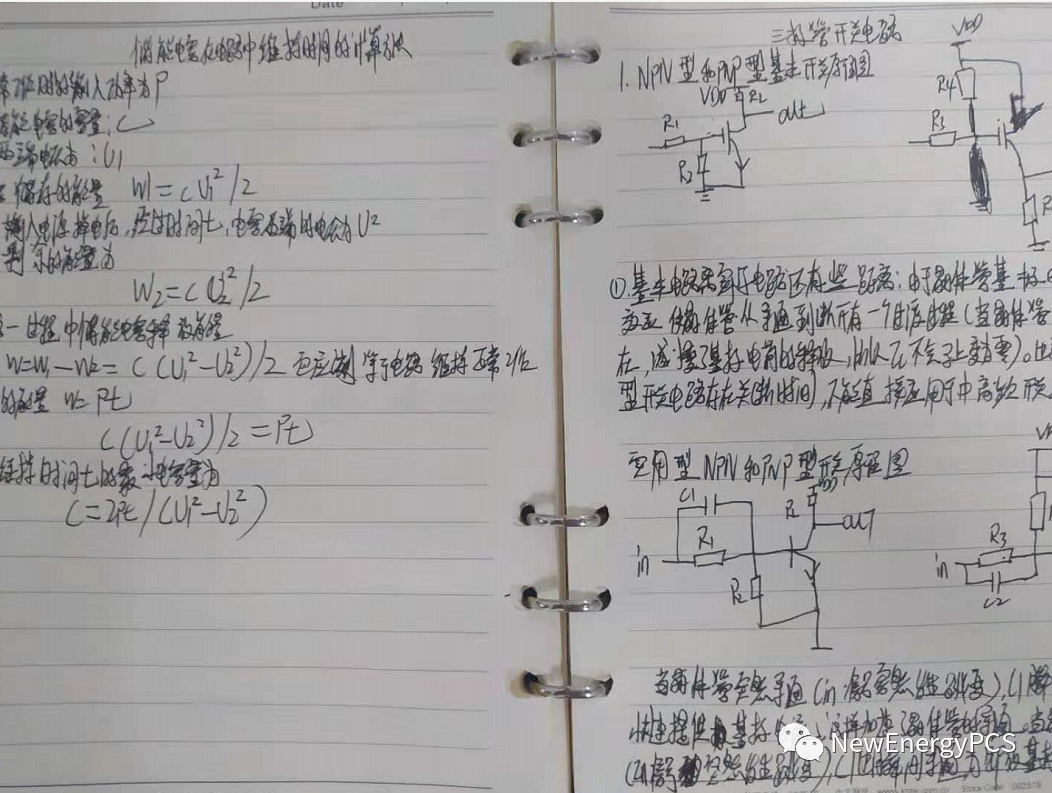 Date
储能电容在电路中维持时间的计算方法
常工作时的输入功率为P
储能电容的容量:C
两端电压为:U1
储存的能量 W1=CU1²/2
输入电源掉电后,经过时间t,电容两端的电压为U2
剩余的能量为
W2=CU2²/2
一过程中储能电容释放能量
W=W1-W2=C(U1²-U2²)/2 它应该等于电路维持正常工作
的能量 W=Pt
C(U1²-U2²)/2=Pt
维持时间t的最小电容量为
C=2Pt/(U1²-U2²)
三极管开关电路
1. NPN型和PNP型基本开关原理图
VDD R2
out
R1
R2
VDD
R4
R3
R
①.基本电路离实际电路还有些距离:由于晶体管基极
使晶体管从导通到断开有一个过渡过程(当晶体管
在,减慢了基极电荷的释放,所以Ic不会马上变为零)。
型开关电路存在关断时间,不能直接应用于中高频开关
实用型NPN和PNP型开关原理图
C1
VDD
R
out
in
R1
R2
R3
in
C2
当晶体管突然导通(in信号突然发生跳变),C1
快速提供基极电流,这样加速了晶体管的导通。当
(in信号突然发生跳变),C1也瞬间导通,为
NewEnergyPCS